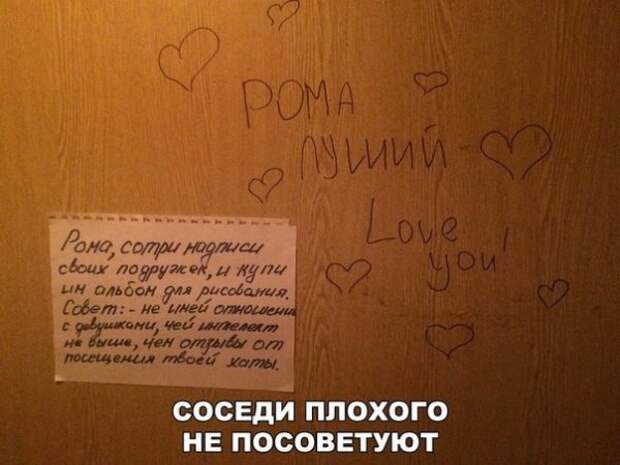 РОМА
ЛУШИЙ
Love
you!
Рома, сотри надписи
своих подружек, и купи
им альбом для рисования.
Совет: - не имей отношении
с девушками, чей интелект
не выше, чем отзывы от
посещения твоей хаты.
СОСЕДИ ПЛОХОГО
НЕ ПОСОВЕТУЮТ